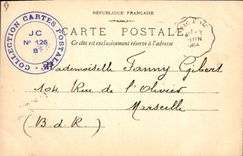 RÉPUBLIQUE FRANÇAISE
CARTE POSTALE
Ce côté est exclusivement réservé à l'adresse
COLLECTION CARTES POSTALES
JC
N° 126
Mademoiselle Fanny Gibert
104 Rue de l'Olivier
Marseille
(B. d. R.)